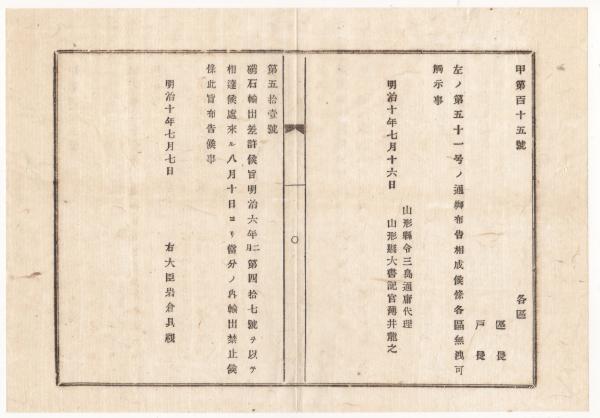 甲第百十五號
各區
區長
戸長
左ノ第五十一号ノ通御布告相成候條各區無洩可
觸示事
明治十年七月十六日
山形縣令三島通庸代理
山形縣大書記官薄井龍之
第五拾壹號
硝石輸出差許候旨明治六年二月第四拾七號ヲ以テ
相達候處來ル八月十日ヨリ當分ノ内輸出禁止候
條此旨布告候事
明治十年七月七日
右大臣岩倉具視